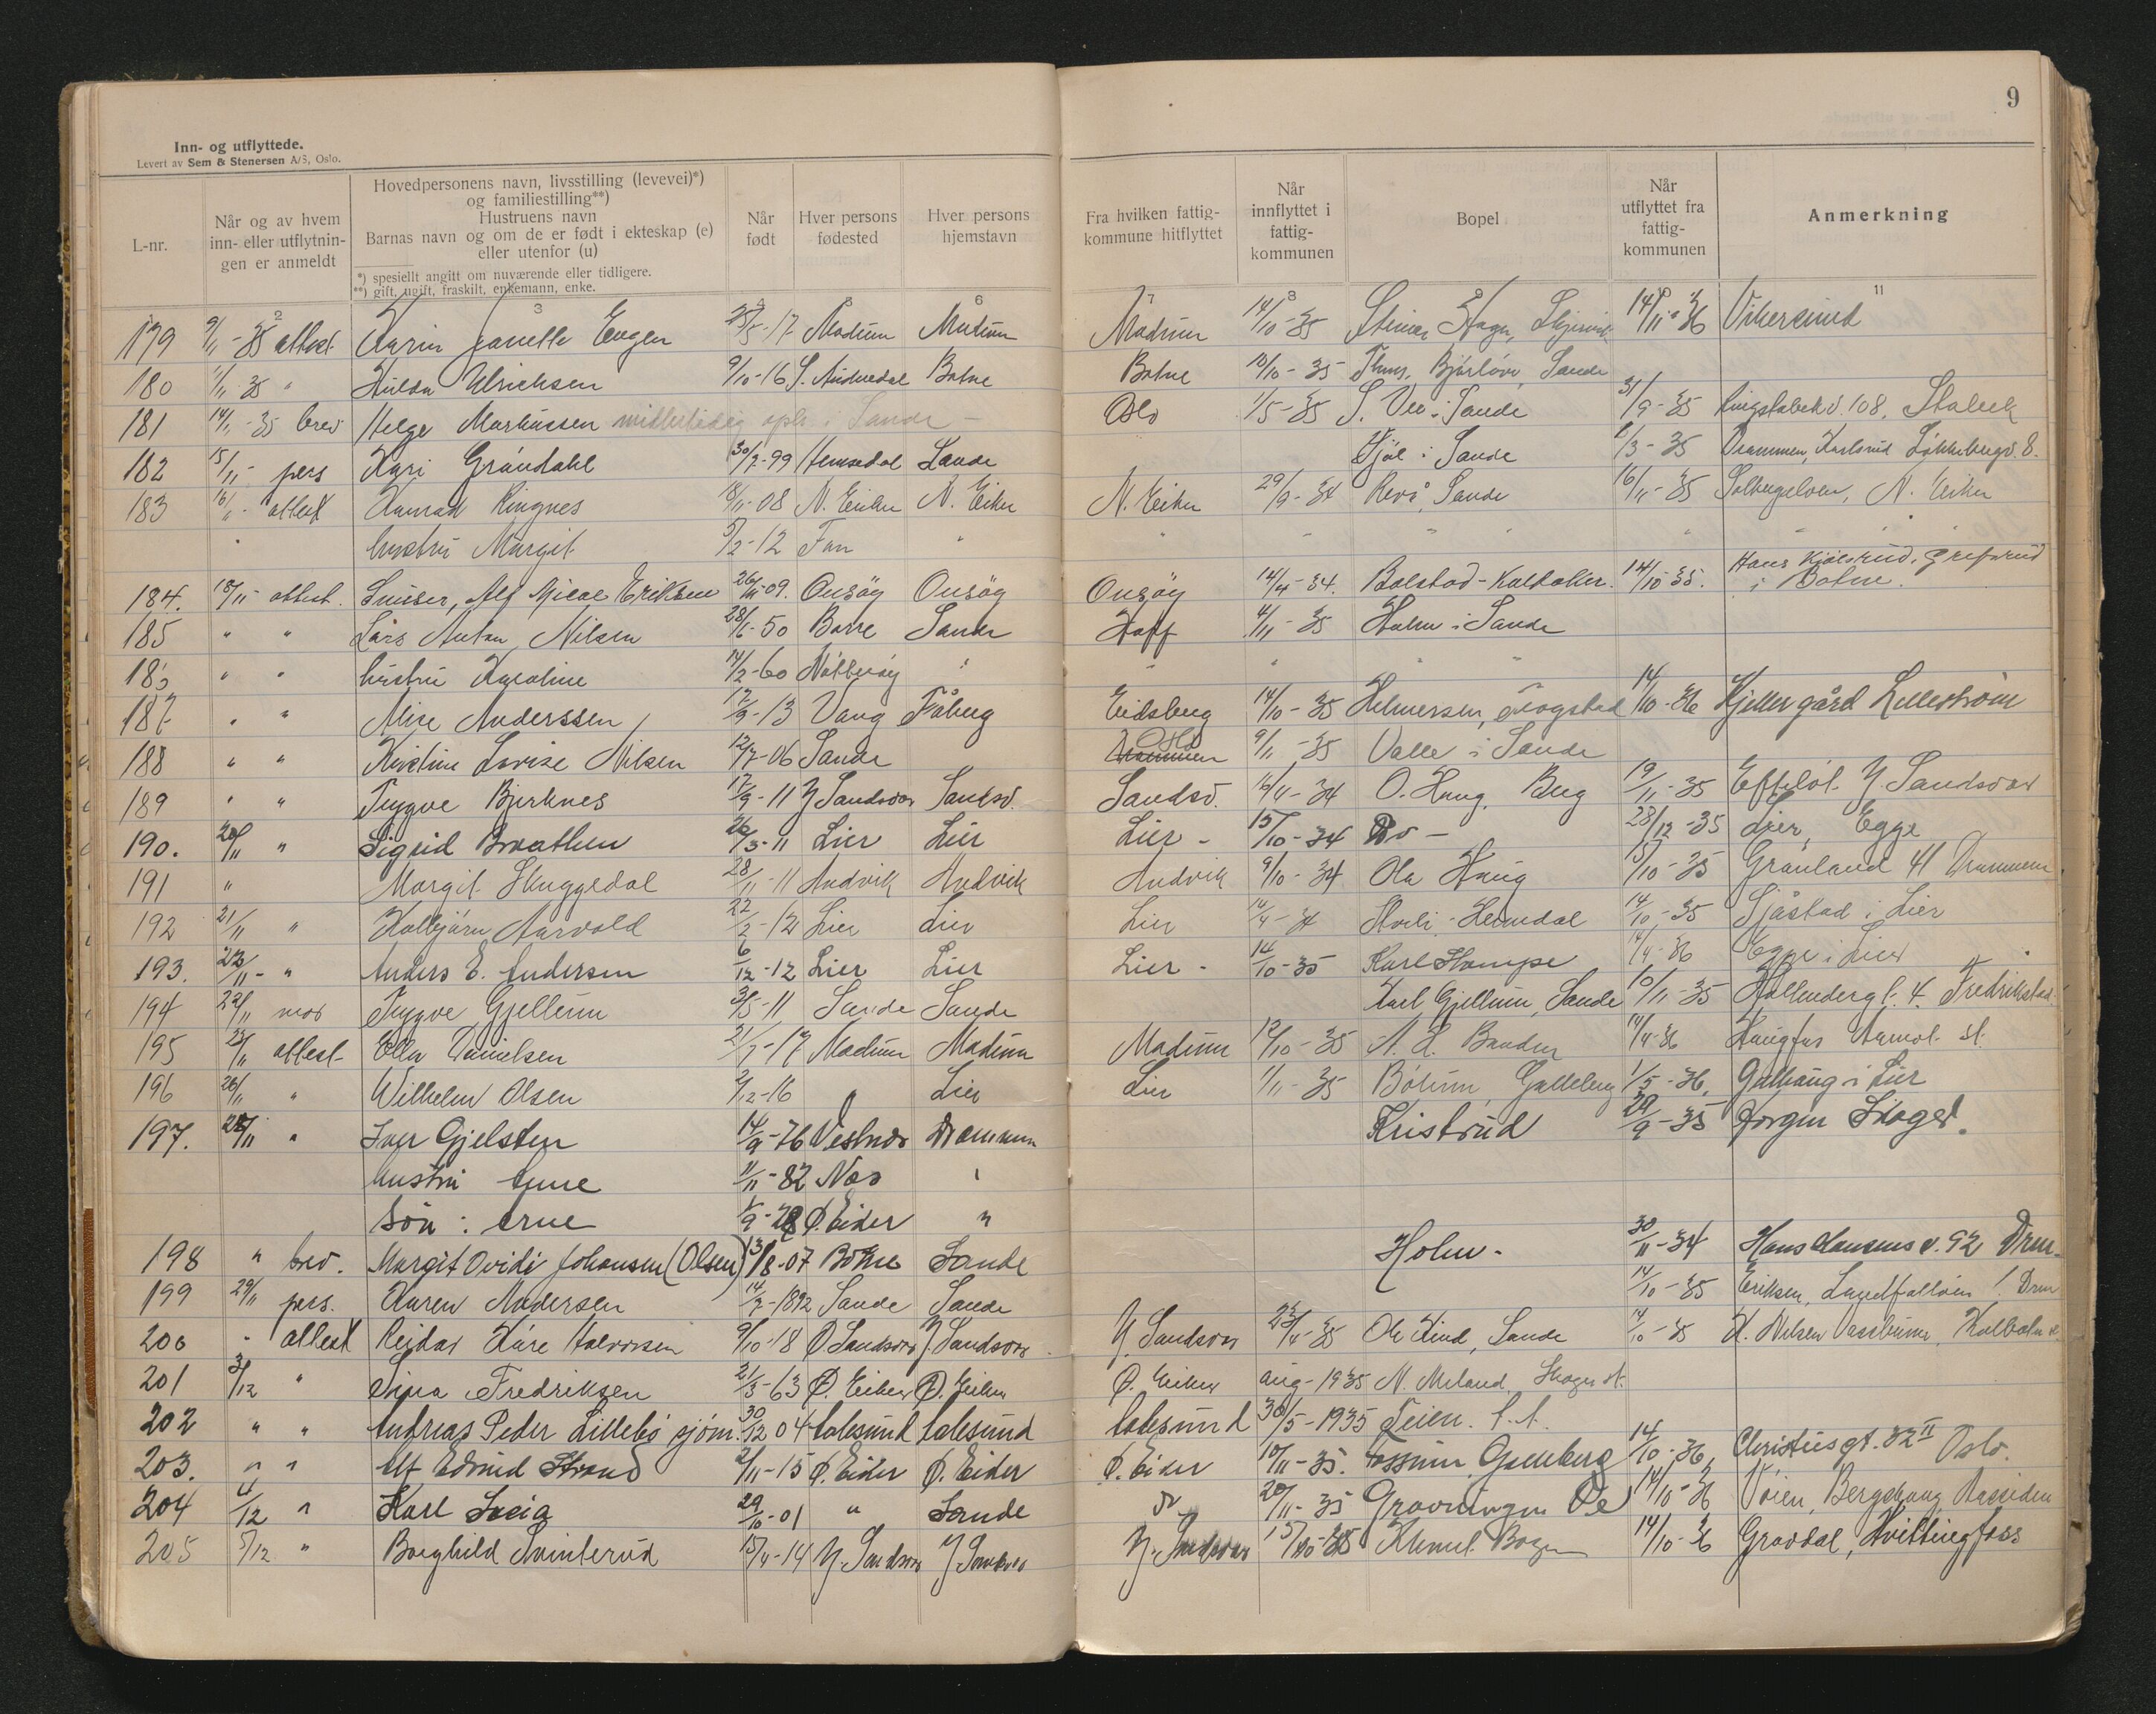 9
Inn- og utflyttede.
Levert av Sem & Stenersen A/S, Oslo.
L-nr.
Når og av hvem inn- eller utflytnin- gen er anmeldt
Hovedpersonens navn, livsstilling (levevei)*)
og familiestilling**)
Hustruens navn
Barnas navn og om de er født i ekteskap (e)
eller utenfor (u)
*) spesiellt angitt om nuværende eller tidligere.
**) gift, ugift, fraskilt, enkemann, enke.
Når født
Hver persons fødested
Hver persons hjemstavn
Fra hvilken fattig- kommune hitflyttet
Når innflyttet i fattig- kommunen
Bopel
Når utflyttet fra fattig- kommunen
Anmerkning
2 3 5 6 7 8 9 10 11
179 9/11-35 attest Karin Janette Engen 25/5-17 Modum Modum Modum 14/10-35 Skjervik 14/11-36 Vikersund
180 1/11 35 " Hulda Ulrichsen 9/10-16 Botne Botne 10/10-35 Sande
181 14/11-35 brev Helge Markussen midlertidig oph. i Sande - Oslo 1/5-35 S. Veo i Sande /9-35 Ringstabekv. 108, Stabek
182 15/11- pers Kari Gröndahl 30/7-99 Hemsedal Sande i Sande /3-35 Drammen,
183 16/11- attest Konrad Ringnes /11-08 N. Eiker N. Eiker N. Eiker 29/9-34 Revå, Sande 16/11-35 Solbergelven, N. Eiker
" hustru Margit 5/2-12 " " " " " "
184. 18/11 attest. Alf Eriksen 26/ -09. Onsöy Onsöy Onsöy 14/4-34. Bolstad - 14/10 35. Hans i Botne.
185 " " Lars Anton Nilsen 28/6-50 Borre Sande Hoff 4/11-35 Holm i Sande
186 " " hustru Karoline 14/2-60 Nötteröy " " " "
187 " " Anderssen 17/9-13 Vang Fåberg Eidsberg 14/10-35 Helmersen, 14/10-36 Kjeller gård Lilleström
188 " " Kristine Lovise Nilsen 12/7-06 Sande Oslo 9/11-35 Valle i Sande
189 " " Trygve Bjerknes 17/9-11 Y Sandsvær Sandsv. Sandsv. 14/4-34 O. Haug, Berg 19/11-35 Efteløt Y. Sandsvær
190. 20/11 " Sigrid Braathen 26/3-11 Lier Lier Lier - 15/10-34 Do - 28/12-35 Lier, Egge
191 " Margit Skuggedal 28/11-11 Andvik Andvik Andvik 9/10-34 Ola Haug /10-35 Grönland 41 Drammen
192 21/11 " Kolbjörn Aarvold 22/2-12 Lier Lier Lier 14/4-34 14/10-35 Sjåstad i Lier
193. 22/11- " Anders E. Andersen 6/12-12 Lier Lier Lier - 14/10-35 Karl Hampe 14/4-36 Egge i Lier
194 22/11 mor Trygve Gjellum 3/5-11 Sande Sande Karl Gjellum, Sande 10/11-35 Hollendergt. 4. Fredrikstad
195 /11 attest Ella Danielsen 21/7-17 Modum Modum Modum 12/10-35 14/4-36 Haugfos Aamot st.
196 26/11 " Wilhelm Olsen 2/12-16 " Lier Lier 1/11-35 Bölum, Galleberg 1/5-36, Gulhaug i Lier
197. /11 " Iver Gjelsten 14/9-76 Vestnes Drammen Kristrud 29/9-35 Jorgen Skoger.
hustru Anne 11/11-82 Nes "
Sön: Arne 1/9-28 Ø. Eiker "
198 " brev. Margit Ovidi Johansen (Olsen) 13/8-07 Botne Sande Holm - 30/11-34 Hans Hansens v. 92 Drm-
199 29/11 pers. Karen Andersen 14/7-1892 Sande Sande 14/10-35 Eriksen, Drm
200 " attest Reidar Kåre Halvorsen 9/10-18 Ø Sandsvær Y. Sandsvær Y. Sandsvær /4-35 Ole Lind, Sande 14/10-35 K. Nilsen
201 3/12 " Sina Fredriksen 21/3-63 Ø. Eiker Ø. Eiker Ø. Eiker aug-1935 N. Meland, Skoger st.
202 " " Andreas Peder Lillebö sjöm. 30/12 04 Aalesund Aalesund Aalesund 30/5-1935 Teien.
203. " " Alf Edvind Strand 2/11-15 Ø. Eiker Ø. Eiker Ø. Eiker 10/11-35. Fossum, Galleberg 14/10-36, Christiesgt. 32 II Oslo.
204 4/12 " Karl 29/10-01 " Sande Do 20/11-35 Gravningen 14/10-36 Vöien, Berghaug, Aassiden
205 5/12 " Borghild Svinterud 15/4-14 Y. Sandsvær Y Sandsvær Y. Sandsvær 15/10-35 14/10-36 Gravdal, Hvittingfoss